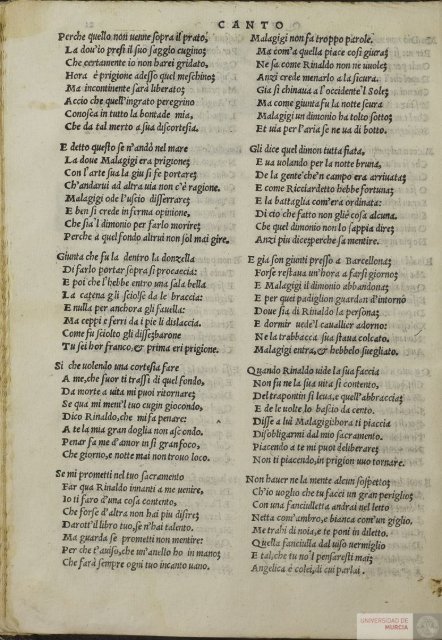 CANTO
Perche quello non uenne sopra il prato,
La dou'io presi il suo saggio cugino;
Che certamente io non harei gridato,
Hora è prigione adesso quel meschino;
Ma incontinente sarà liberato;
Accio che quell'ingrato peregrino
Conosca in tutto la bontade mia,
Che da tal merto a sua discortesia.
E detto questo se n'andò nel mare
La doue Malagigi era prigione;
Con l'arte sua la giu si fe portare;
Ch'andarui ad altra uia non c'è ragione.
Malagigi ode l'uscio disserrare;
E ben si crede in ferma opinione,
Che sia'l dimonio per farlo morire;
Perche a quel fondo altrui non sol mai gire.
Giunta che fu la dentro la donzella
Di farlo portar sopra si procaccia;
E poi che l'hebbe entro una sala bella
La catena gli sciolse da le braccia:
E nulla per anchora gli fauella:
Ma ceppi e ferri da i pie li dislaccia.
Come fu sciolto gli disse;barone
Tu sei hor franco, & prima eri prigione.
Si che uolendo una cortesia fare
A me,che fuor ti trassi di quel fondo,
Da morte a uita mi puoi ritornare;
Se qua mi meni'l tuo cugin giocondo,
Dico Rinaldo,che mi fa penare:
A te la mia gran doglia non ascondo.
Penar fa me d'amor in si gran foco,
Che giorno,e notte mai non trouo loco.
Se mi prometti nel tuo sacramento
Far qua Rinaldo innanti a me uenire,
Io ti farò d'una cosa contento,
Che forse d'altra non hai piu disire;
Darotti'l libro tuo,se n'hai talento.
Ma guarda se prometti non mentire:
Per che t'auiso,che un'anello ho in mano;
Che farà sempre ogni tuo incanto uano.
Malagigi non fa troppo parole.
Ma com'a quella piace cosi giura;
Ne sa come Rinaldo non ne uuole;
Anzi crede menarlo a la sicura.
Gia si chinaua a l'occidente'l Sole;
Ma come giunta fu la notte scura
Malagigi un dimonio ha tolto sotto;
Et uia per l'aria se ne ua di botto.
Gli dice quel dimon tutta fiata,
E ua uolando per la notte bruna,
De la gente ch'n campo era arriuata;
E come Ricciardetto hebbe fortuna;
E la battaglia com'era ordinata:
Di cio che fatto non gliè cosa alcuna.
Che quel dimonio non lo sappia dire;
Anzi piu dice;perche sa mentire.
E gia son giunti presso a Barcellona;
Forse restaua un'hora a farsi giorno;
E Malagigi il dimonio abbandona;
E per quei padiglion guardan d'intorno
Doue sia di Rinaldo la persona;
E dormir uede'l cauallier adorno:
Ne la trabbacca sua staua colcato.
Malagigi entra, & hebbelo suegliato.
Quando Rinaldo uide la sua faccia
Non fu ne la sua uita si contento,
Del trapontin si leua,e quell'abbraccia;
E de le uolte lo bascio da cento.
Disse a lui Malagigi hora ti piaccia
Disobligarmi dal mio sacramento.
Piacendo a te mi puoi deliberare;
Non ti piacendo,in prigion uuo tornare.
Non hauer ne la mente alcun sospetto;
Ch'io uoglio che tu facci un gran periglio;
Con una fanciulletta andrai nel letto
Netta com'ambro,e bianca com'un giglio,
Me trahi di noia,e te poni in diletto.
Quella fanciulla dal uiso uermiglio
E tal,che tu no'l pensaresti mai;
Angelica è colei,di cui parlai.
UNIVERSIDAD DE
MURCIA